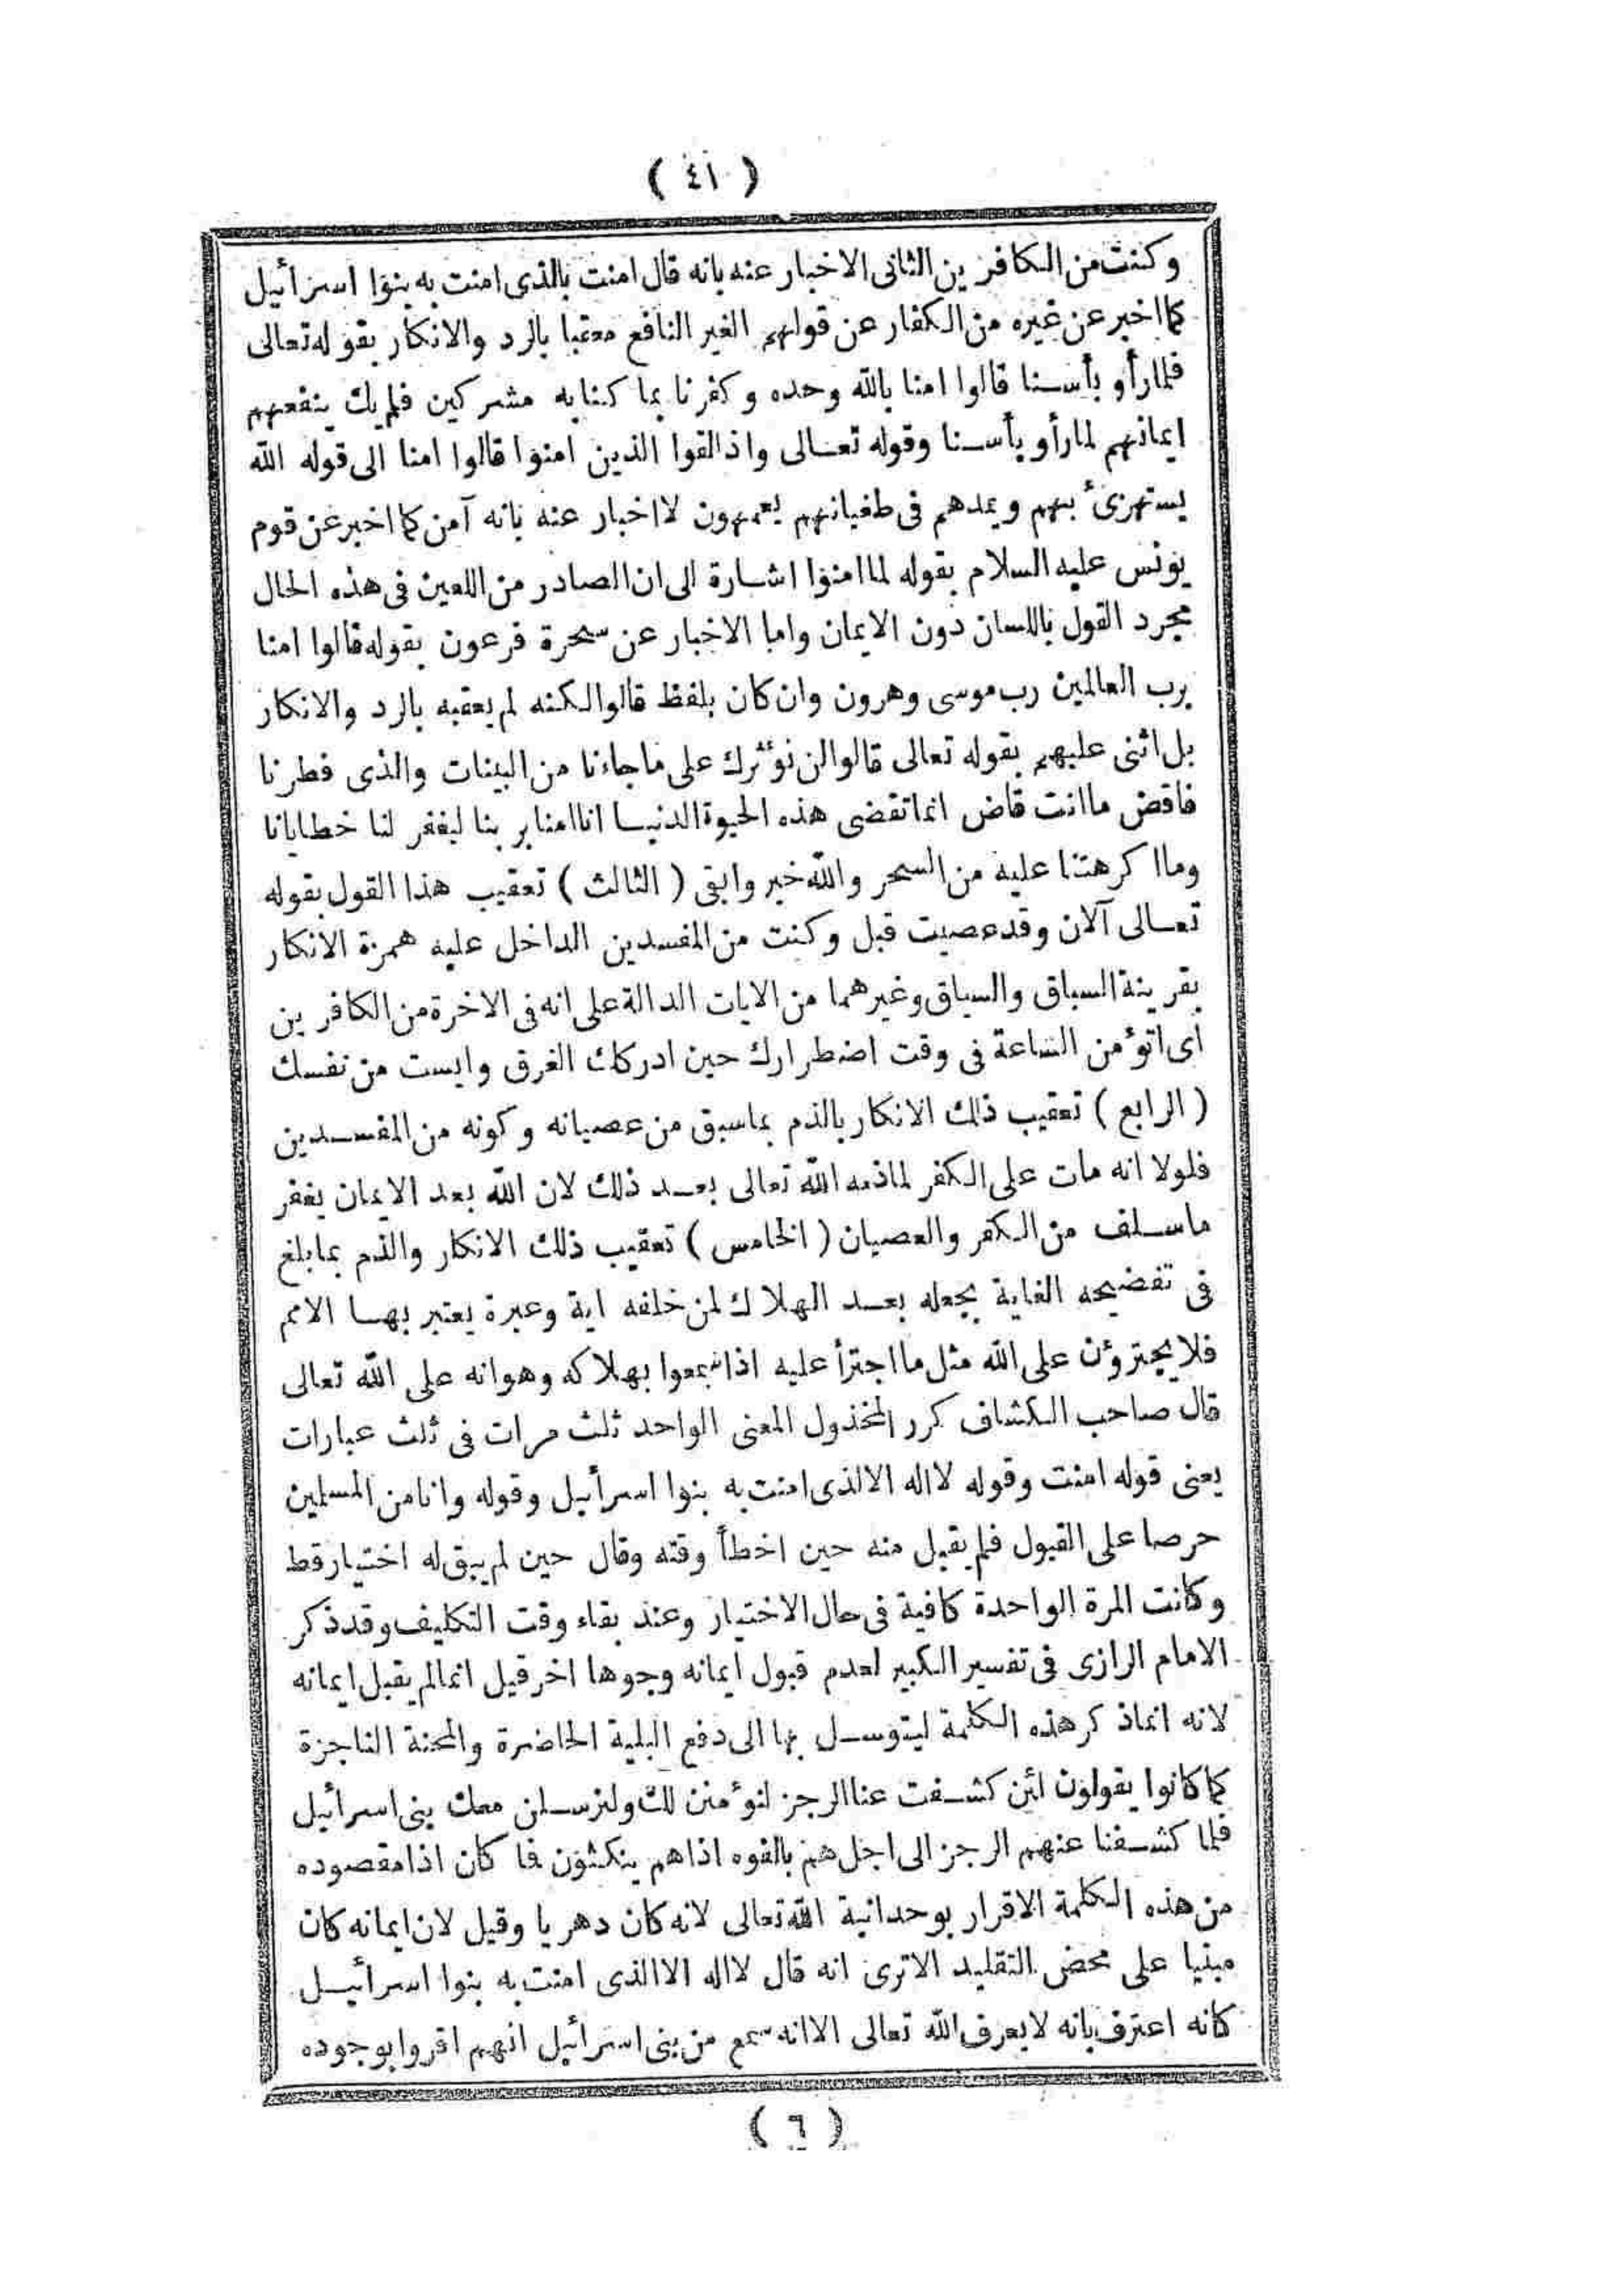 ( ٤١ )
وكنت من الكافرين الثانى الاخبار عنه بانه قال امنت بالذى امنت به بنوا اسرائيل
كما اخبر عن غيره من الكفار عن قولهم الغير النافع معقبا بالرد والانكار بقوله تعالى
فلما رأو بأسنا قالوا امنا بالله وحده وكفرنا بما كنا به مشركين فلم يك ينفعهم
ايمانهم لما رأو بأسنا وقوله تعالى واذا لقوا الذين امنوا قالوا امنا الى قوله الله
يستهزئ بهم ويمدهم فى طغيانهم يعمهون لا اخبار عنه بانه آمن كما اخبر عن قوم
يونس عليه السلام بقوله لما امنوا اشارة الى ان الصادر من اللعين فى هذه الحال
مجرد القول باللسان دون الايمان واما الاخبار عن سحرة فرعون بقوله قالوا امنا
برب العالمين رب موسى وهرون وان كان بلفظ قالوا لكنه لم يعقبه بالرد والانكار
بل اثنى عليهم بقوله تعالى قالوا لن نؤثرك على ما جاءنا من البينات والذى فطرنا
فاقض ما انت قاض انما تقضى هذه الحيوة الدنيا انا امنا بربنا ليغفر لنا خطايانا
وما اكرهتنا عليه من السحر والله خير وابقى ( الثالث ) تعقيب هذا القول بقوله
تعالى آلان وقد عصيت قبل وكنت من المفسدين الداخل عليه همزة الانكار
بقرينة السباق والسياق وغيرهما من الايات الدالة على انه فى الاخرة من الكافرين
اى اتؤمن الساعة فى وقت اضطرارك حين ادركك الغرق وايست من نفسك
( الرابع ) تعقيب ذلك الانكار بالذم بما سبق من عصيانه وكونه من المفسدين
فلولا انه مات على الكفر لما ذمه الله تعالى بعد ذلك لان الله بعد الايمان يغفر
ما سلف من الكفر والعصيان ( الخامس ) تعقيب ذلك الانكار والذم بما بلغ
فى تفضيحه الغاية بجعله بعد الهلاك لمن خلفه اية وعبرة يعتبر بها الامم
فلا يجترؤن على الله مثل ما اجترأ عليه اذا سمعوا بهلاكه وهوانه على الله تعالى
قال صاحب الكشاف كرر المخذول المعنى الواحد ثلث مرات فى ثلث عبارات
يعنى قوله امنت وقوله لا اله الا الذى امنت به بنوا اسرأيل وقوله وانا من المسلمين
حرصا على القبول فلم يقبل منه حين اخطأ وقته وقال حين لم يبق له اختيار قط
وكانت المرة الواحدة كافية فى حال الاختيار وعند بقاء وقت التكليف وقد ذكر
الامام الرازى فى تفسير الكبير لعدم قبول ايمانه وجوها اخر قيل انما لم يقبل ايمانه
لانه انما ذكر هذه الكلمة ليتوسل بها الى دفع البلية الحاضرة والمحنة الناجزة
كما كانوا يقولون لئن كشفت عنا الرجز لنؤمنن لك ولنرسلن معك بنى اسرائيل
فلما كشفنا عنهم الرجز الى اجل هم بالغوه اذا هم ينكثون فما كان اذا مقصوده
من هذه الكلمة الاقرار بوحدانية الله تعالى لانه كان دهريا وقيل لان ايمانه كان
مبنيا على محض التقليد الا ترى انه قال لا اله الا الذى امنت به بنوا اسرائيل
كانه اعترف بانه لا يعرف الله تعالى الا انه سمع من بنى اسرائيل انهم اقروا بوجوده
( ٦ )